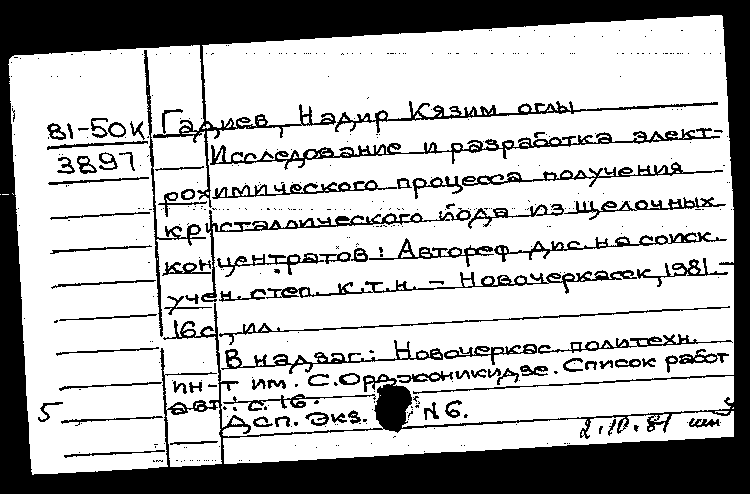 81-50К
3897
Гадиев, Надир Кязим оглы
Исследование и разработка элект-
рохимического процесса получения
кристаллического йода из щелочных
концентратов: Автореф. дис. на соиск.
учен. степ. к.т.н. – Новочеркасск, 1981.–
16с., ил.
В надзаг.: Новочеркас. политехн.
ин-т им. С. Орджоникидзе. Список работ
авт.: с. 16.
Дсп. Экз. N 6.
5
2.10.81